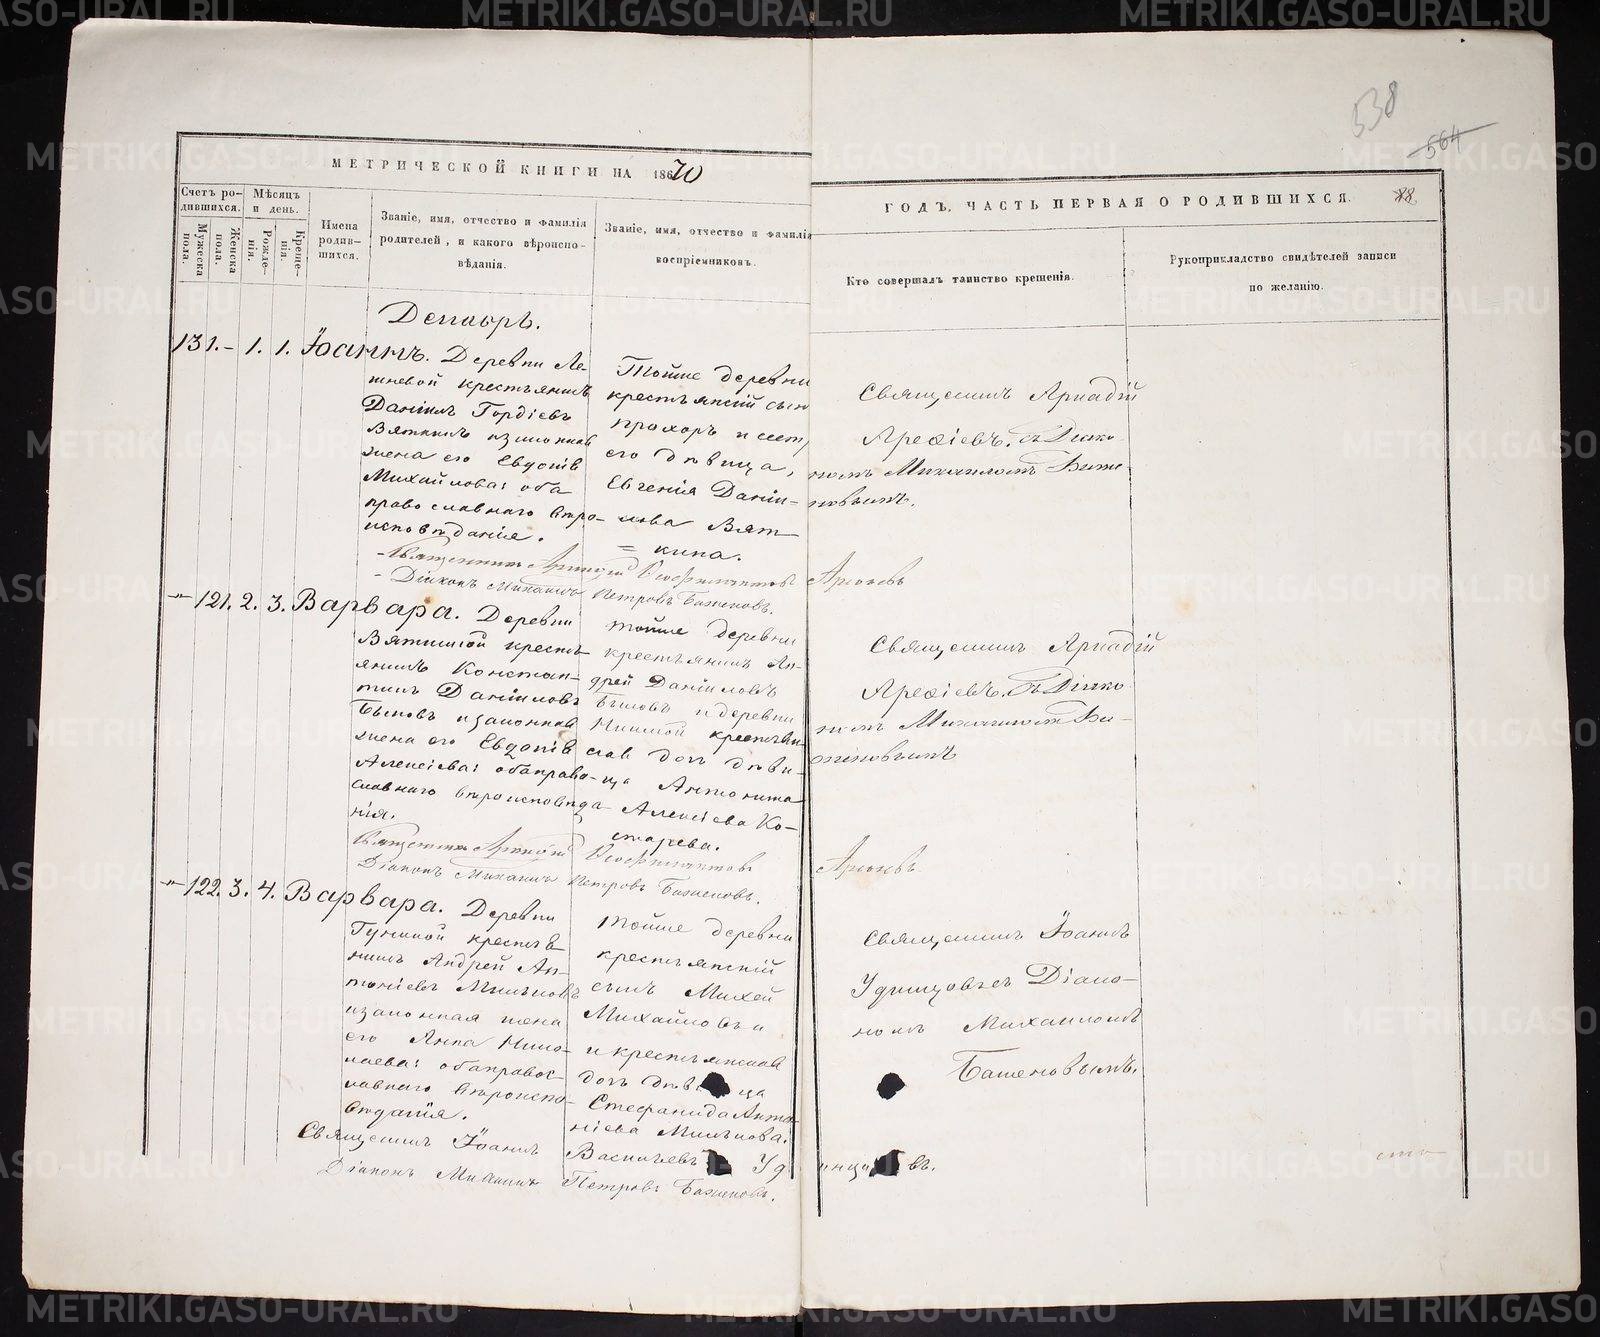 538
564
МЕТРИЧЕСКОЙ КНИГИ НА 1870
ГОДЪ, ЧАСТЬ ПЕРВАЯ О РОДИВШИХСЯ.
88
Счетъ ро-
дившихся.
Мужеска
пола.
Женска
пола.
Мѣсяцъ
и день.
Рожде-
нія.
Креще-
нія.
Имена
родив-
шихся.
Званіе, имя, отчество и фамилія
родителей, и какого вѣроиспо-
вѣданія.
Званіе, имя, отчество и фамилія
воспріемниковъ.
Кто совершалъ таинство крещенія.
Рукоприкладство свидѣтелей записи
по желанію.
Декабрь.
131. – 1. 1. Іоаннъ. Деревни
крестьянинъ
Даніилъ Гордіевъ
Вяткинъ и законная
жена его Евдокія
Михайлова: оба
православнаго вѣро-
исповѣданія.
Тойже деревни
крестьянскій сынъ
Прохоръ и сестра
его дѣвица,
Евгенія Данiи-
лова Вят-
кина.
Священникъ Аркадій
Арефіевъ, съ Діако-
номъ Михаиломъ Баже-
новымъ.
Священникъ Аркадій
Діаконъ Михаилъ Петровъ Баженовъ.
-"- 121. 2. 3. Варвара. Деревни
Вяткиной кресть-
янинъ Констан-
тинъ Даніиловъ
Быковъ и законная
жена его Евдокія
Алексіева: оба право-
славнаго вѣроисповѣда-
нія.
Тойже деревни
крестьянинъ Ан-
дрей Даніиловъ
Быковъ и деревни
крестьян-
ская дочь дѣви-
ца Антонина
Алексіева Ко-
старева.
Священникъ Аркадій
Арефіевъ, съ Діако-
номъ Михаиломъ Ба-
женовымъ
Священникъ Аркадій
Діаконъ Михаилъ Петровъ Баженовъ.
-"- 122. 3. 4. Варвара. Деревни
крестья-
нинъ Андрей Ан-
тоніевъ Мильковъ
и законная жена
его Анна Нико-
лаева: оба правос-
лавнаго вѣроиспо-
вѣданія.
Тойже деревни
крестьянскій
сынъ Михей
Михайловъ и
и крестьянская
дочь дѣвица
Стефанида Анто-
ніева Милькова.
Священникъ Іоаннъ
Удинцовъ съ Діако-
номъ Михаиломъ
Баженовымъ.
Священникъ Іоаннъ Васильевъ Удинцовъ.
Діаконъ Михаилъ Петровъ Баженовъ.
METRIKI.GASO-URAL.RU